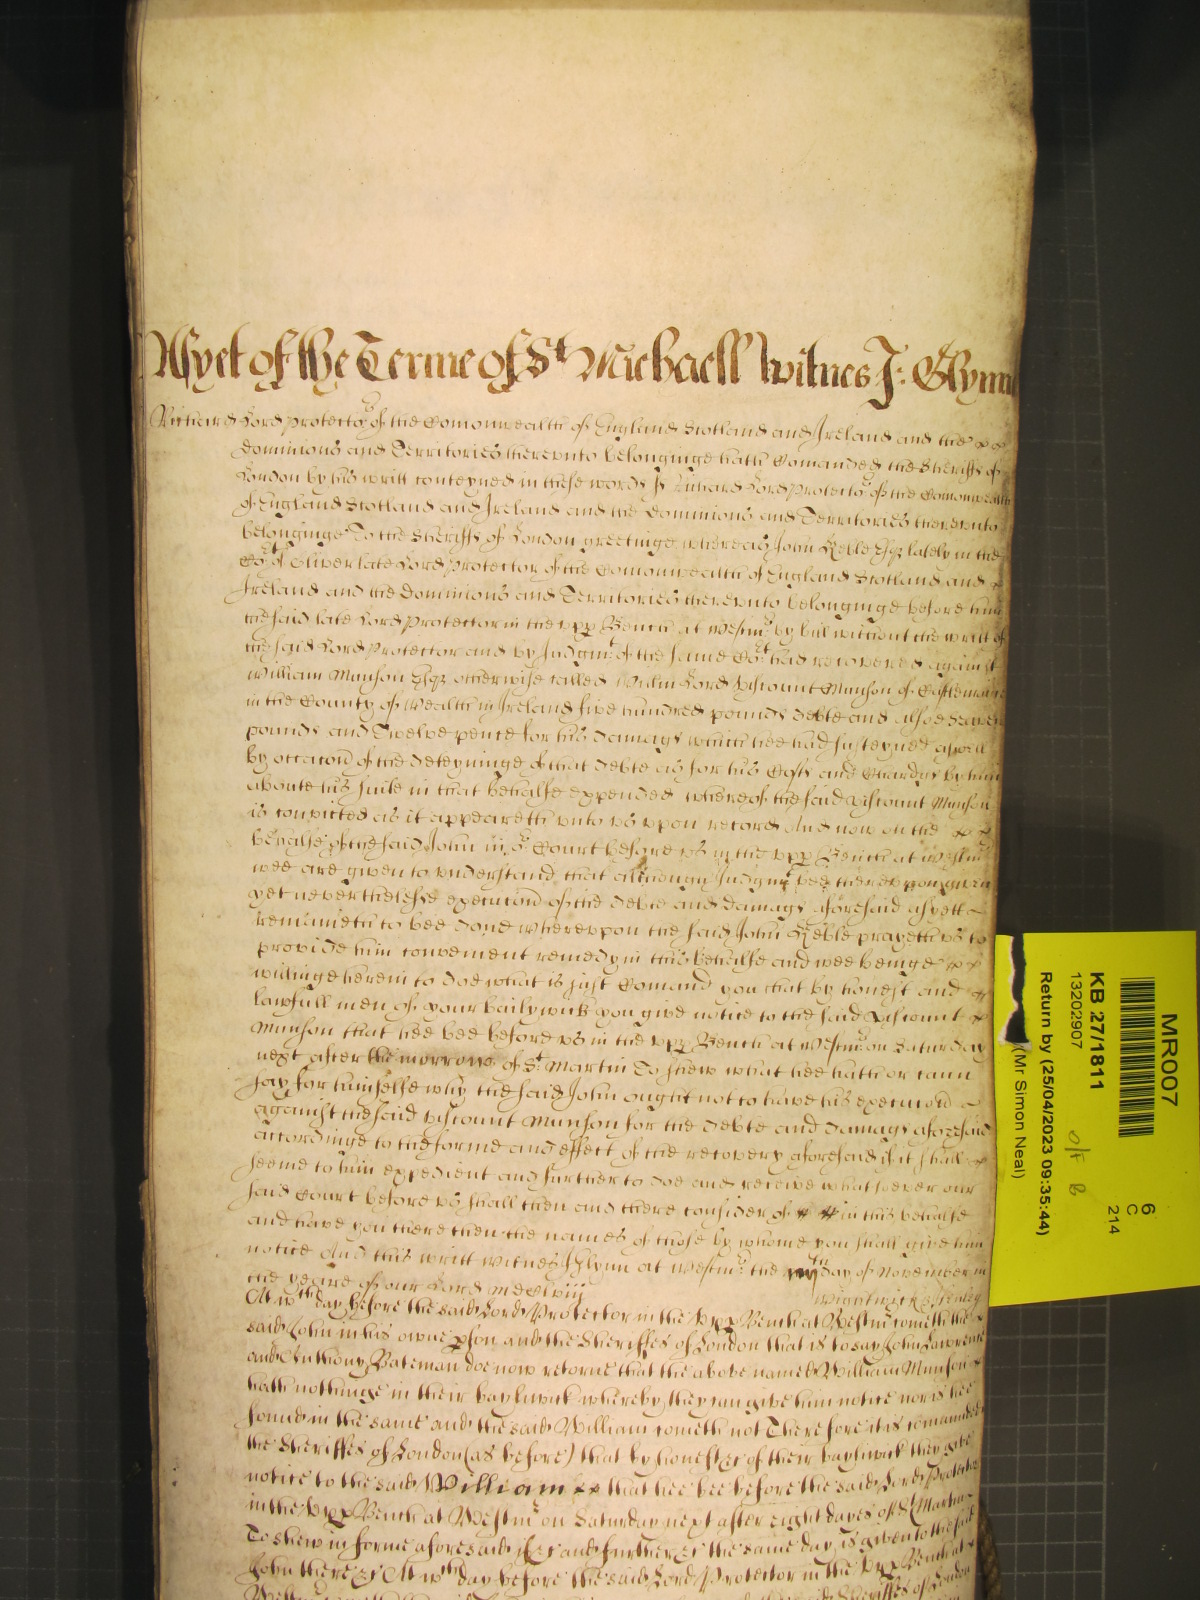 As yet of the Terme of St Michaell witnes J: Glynn
Richard Lord Protector of the Comonwealth of England Scotland and Ireland and the
dominions and Territories therevnto belonginge hath Comanded the Sheriffs of
London by his writt conteyned in these words ss Richard Lord Protector of the Comonwealth
of England Scotland and Ireland and the Dominions and Territories therevnto
belonginge To the Sheriffs of London greetinge whereas John Keble Esqr lately in the
Cot of Oliver late Lord Protector of the Comonwealth of England Scotland and
Ireland and the Dominions and Territories therevnto belonginge before him
the said late Lord Protector in the vpp Bench at Westmr by bill without the writt of
the said Lord Protector and by Judgmt of the same Cot had recovered against
William Munson Esqr otherwise called Willm Lord Viscount Munson of Castlemaine
in the County of Wealth in Ireland five hundred pounds debte and alsoe seaven
pounds and Twelve pence for his damags which hee had susteyned aswell
by occacion of the deteyninge of that debte as for his Costs and Chardgs by him
aboute his suite in that behalfe expended whereof the said Viscount Munson
is convicted as it appeareth vnto vs vpon record And now on the
behalfe of the said John in or Court before vs in the vpp Bench at Westmr
wee are given to vnderstand that although Judgmt bee therevpon given
yet neverthelesse execucion of the debte and damags aforesaid as yett
remaineth to bee done wherevpon the said John Keble prayeth vs to
provide him convenient remedy in this behalfe and wee beinge
willinge herein to doe what is just Comand you that by honest and
lawfull men of your bailywick you give notice to the said Viscount
Munson that hee bee before vs in the vpp Bench at Westmr on Saturday
next after the morrow of St Martin To shew what hee hath or cann
say for himselfe why the said John ought not to have his execucion
against the said Viscount Munson for the debte and damags aforesaid
accordinge to the forme and effect of the recovery aforesaid if it shall
seeme to him expedient and further to doe and receive whatsoever our
said Court before vs shall then and there consider of in this behalfe
and have you there then the names of those by whome you shall give him
notice And this writt witnes J Glynn at Westmr the day of November in
the yeare of our Lord MDCLviij
Wightwick &
At wch day before the said Lord Protector in the vpp Bench at Westmr cometh the
said John in his owne pson and the Sheriffes of London that is to say John Lawrence
and Anthony Bateman doe now retorne that the above named William Munson
hath nothinge in their bayliwick whereby they can give him notice nor is hee
found in the same and the said William cometh not Therefore it is comanded
the Sheriffes of London (as before) that by honest &c of their bayliwick they give
notice to the said William that hee bee before the said Lord Protector
in the vpp Bench at Westmr on Saturday next after eight dayes of St Martin
To shew in forme aforesaid if &c and further &c the same day is given to the said
John there &c At wch day before the said Lord Protector in the vpp Bench at
Sheriffes of London
MR007
KB 27/1811
13202907
Return by (25/04/2023 09:35:44)
(Mr Simon Neal)
6
C
214